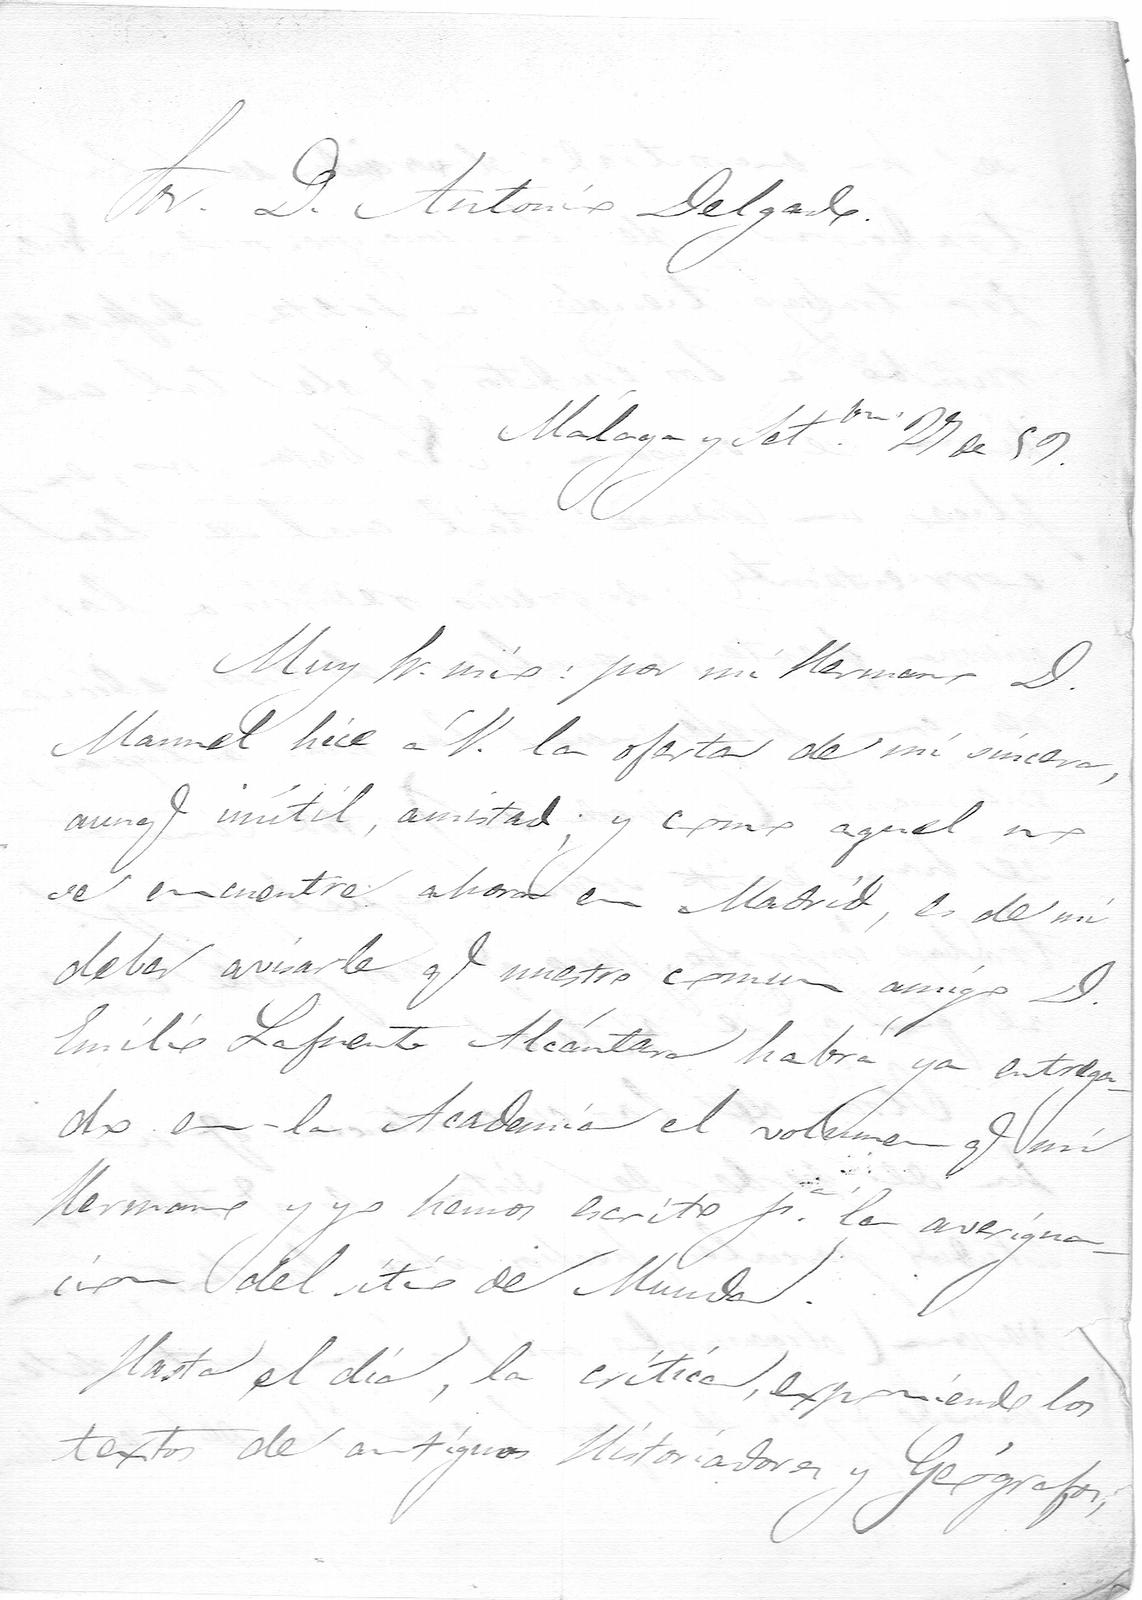 Sor. D. Antonio Delgado.
Málaga y Set.bre 27 de 59.
Muy Sr. mio: por mi Hermano D.
Manuel hice á V. la oferta de mi sincera,
aunq inútil, amistad; y como aquel no
se encuentre ahora en Madrid, es de mi
deber avisarle q nuestro comun amigo D.
Emilio Lafuente Alcántara habrá ya entrega-
do en la Academia el volumen q mi
Hermano y yo hemos escrito pa. la averigua-
cion del sitio de Munda.
Hasta el día, la crítica, exponiendo los
textos de antiguos Historiadores y Geógrafos,